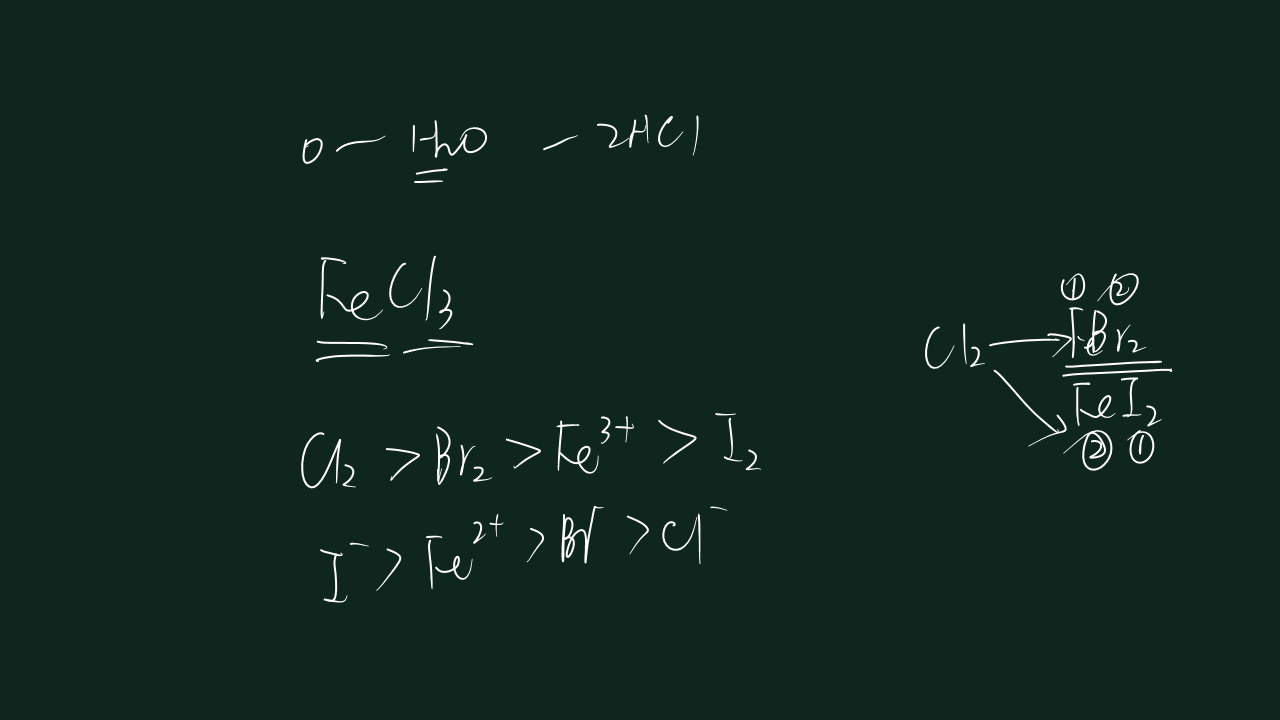 O — H₂O — 2HCl
FeCl₃
Cl₂ > Br₂ > Fe³⁺ > I₂
I⁻ > Fe²⁺ > Br⁻ > Cl⁻
① ②
Cl₂ → FeBr₂
FeI₂
② ①